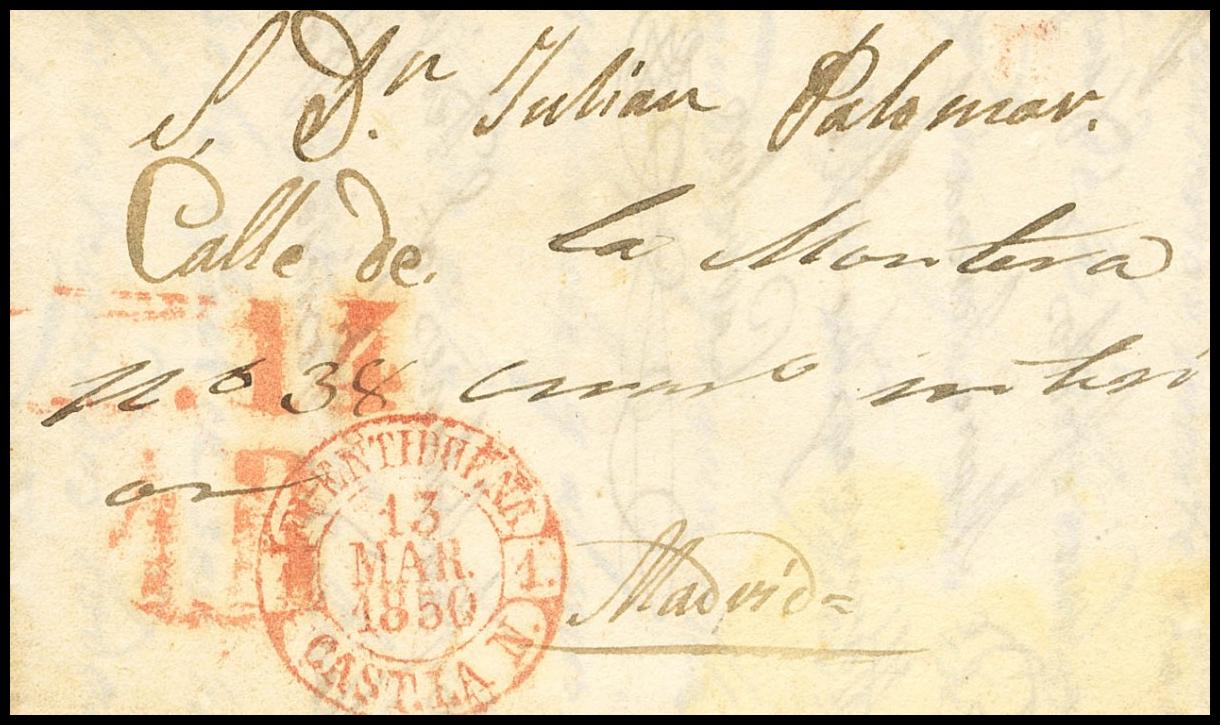 S. Dn Julian Palomar.
Calle de. la Montera
nº 38 cuarto interi
or
Madrid=
13
MAR.
1850
1.
CAST. LA N.